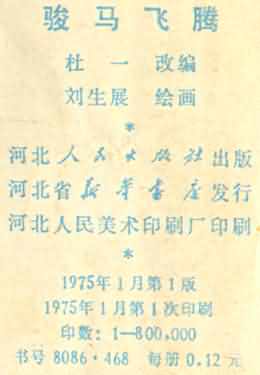 骏马飞腾
杜一 改编
刘生展 绘画
*
河北人民出版社出版
河北省新华书店发行
河北人民美术印刷厂印刷
*
1975年1月第1版
1975年1月第1次印刷
印数：1—800,000
书号 8086·468 每册 0.12元